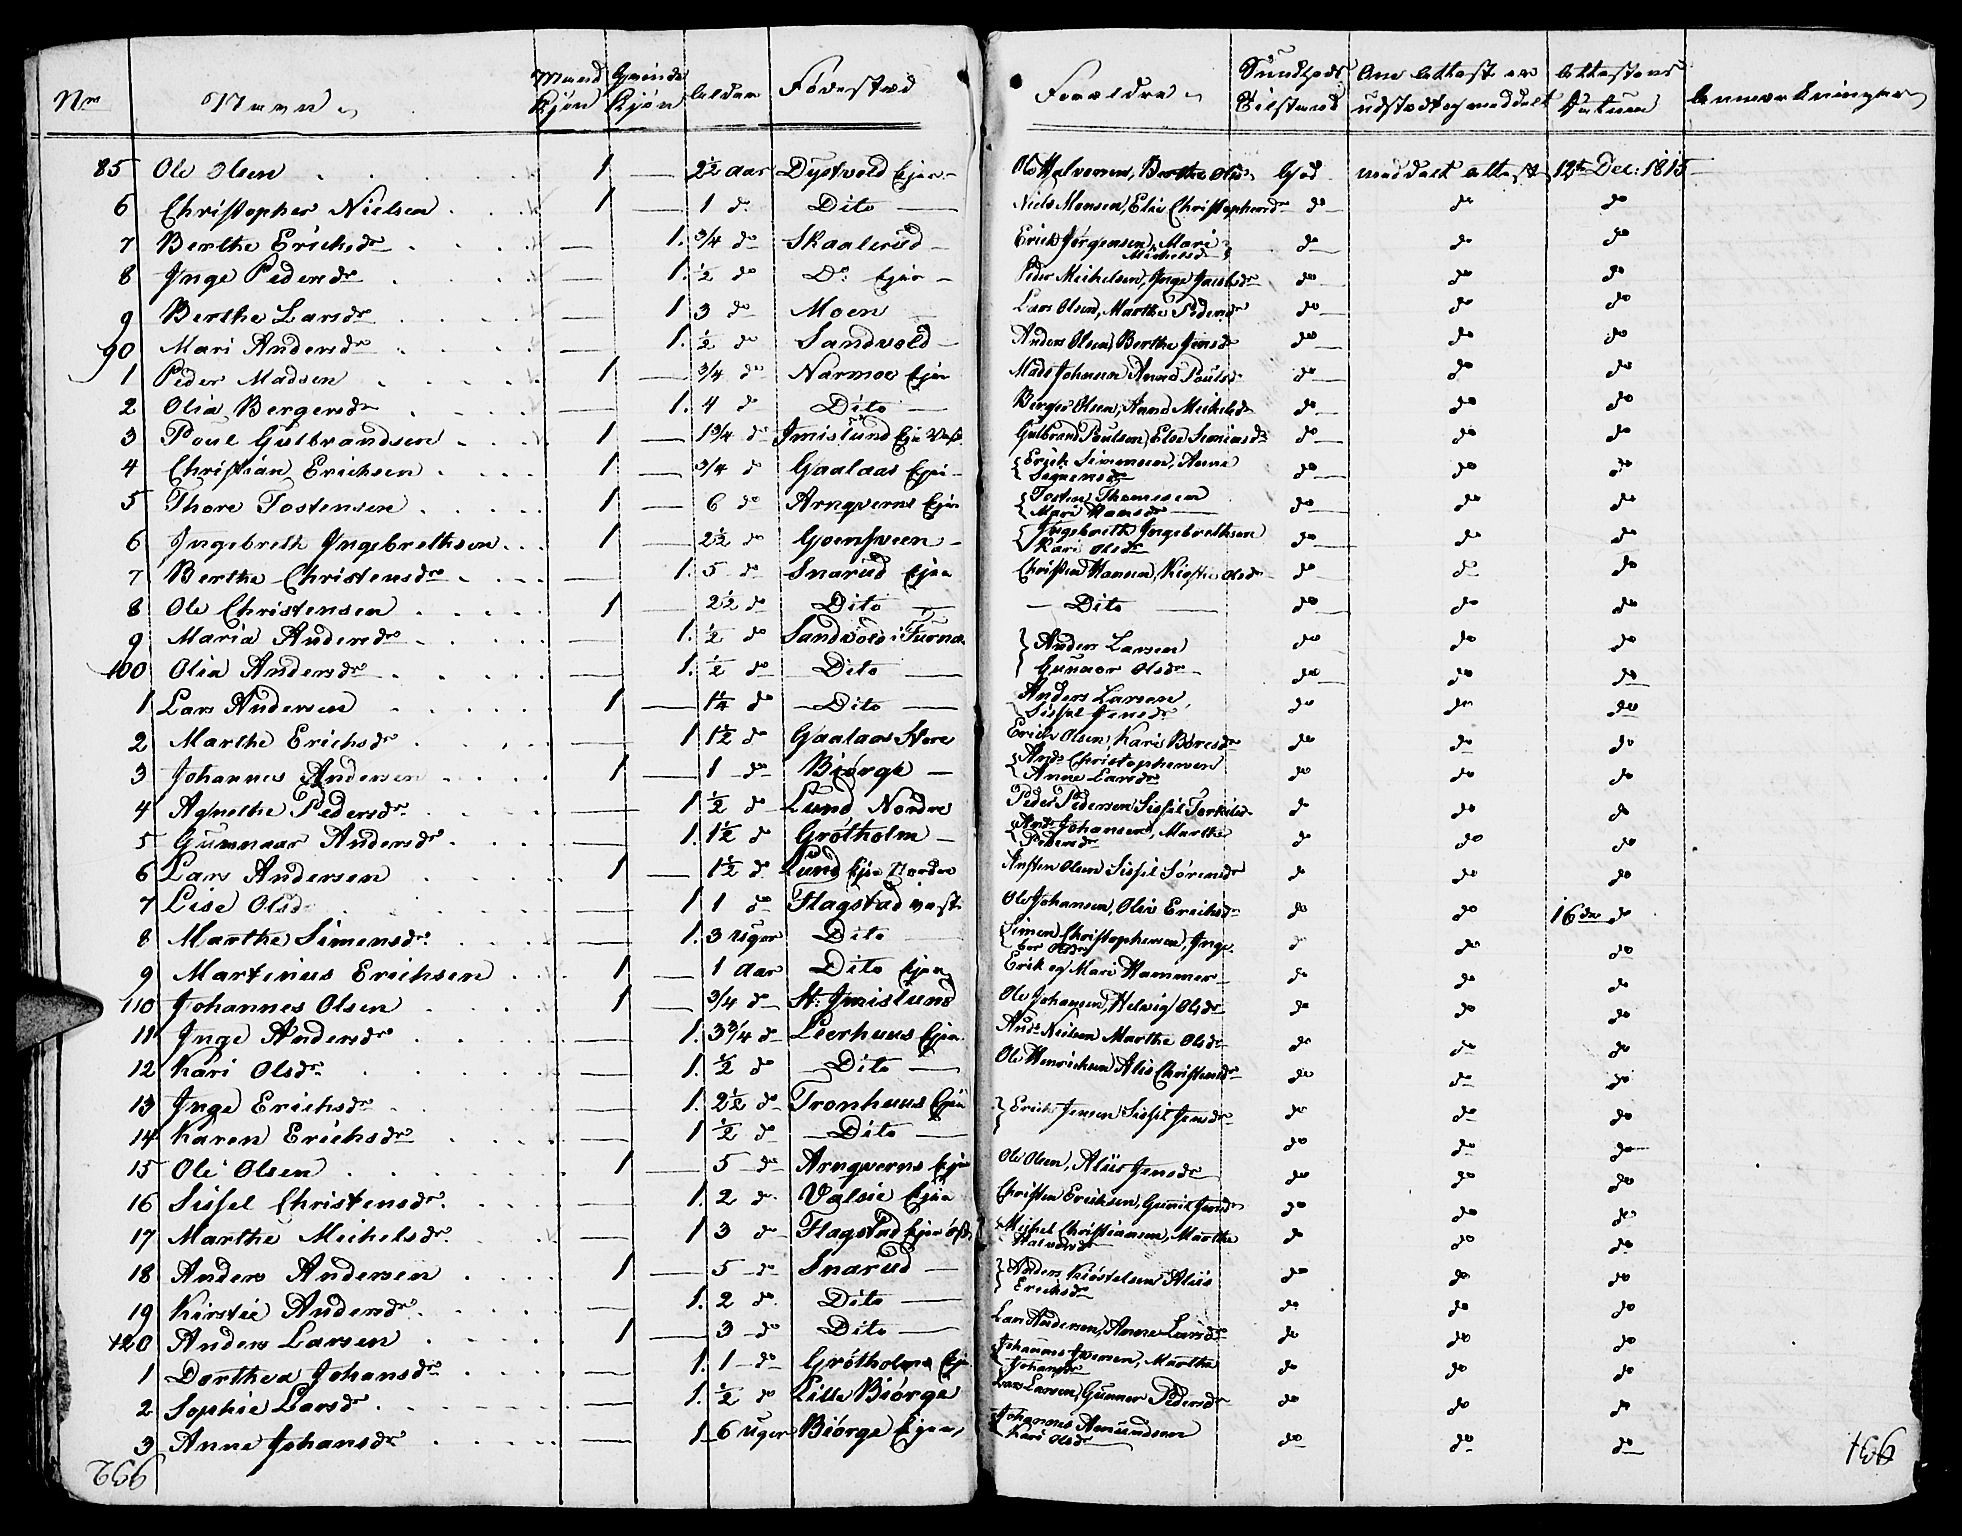 Nr Navn Mand Kjøn Qvinde Kjøn Alder Fødested Forældre Sundheds Tilstand Om Attest er udstædt og meddelt Attestens Datum Anmærkninger
85 Ole Olsen 1 — 2½ Aar Dystvold Ejer Ole Halvorsen, Berthe Olsdr God meddelt attest 12te Dec: 1815
6 Christopher Nielsen 1 — 1 do Dito — Niels Monsen, Elie Christophersdr do do do
7 Berthe Erichsdr — 1. 3/4 do Skaalerud — Erich Jørgensen, Mari Michelsdr do do do
8 Inge Pedersdr — 1. ½ do Do Ejer — Peder Michelsen, Inge Jacobsdr do do do
9 Berthe Larsdr — 1 3 do Moen Lars Olsen, Marthe Pedersdr do do do
90 Mari Andersdr — 1. ½ do Sandvold — Anders Olsen, Berthe Jensdr do do do
1 Peder Madsen 1 — 3/4 do Narmoe Ejer Mads Johansen Anne Poulsdr do do do
2 Olia Bergersdr — 1. 4 do Dito — Berger Olsen, Anne Michelsdr do do do
3 Poul Gulbrandsen 1 — 1 3/4 do Imislund Ejer Vest Gulbrand Poulsen, Eloe Simensdr do do do
4 Christian Erichsen 1 — 3/4 do Gaalaas Ejer — Erich Simensen, Anne do do do
5 Thore Tostensen 1 — 6 do Arnqverns Ejer Tosten Thomesen Mari Hansdr do do do
6 Ingebreth Ingebrethsen 1 — 2½ do Goensveen — Ingebreth Ingebrethsen Kari Olsdr do do do
7 Berthe Christensdr — 1. 5 do Snarud Ejer Christen Hansen, Kirstie Olsdr do do do
8 Ole Christensen 1 — 2½ do Dito — — Dito — do do do
9 Maria Andersdr — 1. ½ do Sandvold i Furnæs Anders Larsen do do do
100 Olia Andersdr — 1. ½ do Dito — Gunnor Olsdr do do do
1 Lars Andersen 1 — 1¼ do — Dito — Anders Larsen, Sissel Jensdr do do do
2 Marthe Erichsdr — 1 1½ do Gaalaas Store Erich Olsen, Kari Boresdr do do do
3 Johannes Andersen 1 — 1 do Biørge — Ands Christophersen Anne Larsdr do do do
4 Agnethe Pedersdr — 1 ½ do Lund Nordre Peder Pedersen Sissel Torkilsdr do do do
5 Gunnaar Andersdr — 1. 1½ do Grøtholm — Ands Johansen, Marthe Pedersdr do do do
6 Lars Andersen 1 — 1½ do Lund Ejer Nordre Ansten Olsen Sissel Sørensdr do do do
7 Lise Olsd — 1 1 do Flagstad vest Ole Johansen, Olia Erichsdr do do 16de do
8 Marthe Simensdr — 1. 3 Uger Dito — Simen Christophersen, Inge bor Olsdr do do do
9 Martinus Erichsen 1 — 1 Aar Dito Ejer Erik og Mari Hammer do do do
110 Johannes Olsen 1 — 3/4 do St: Imislund Ole Johansen, Helvig Olsdr do do do
11 Inge Andersdr — 1. 3 3/4 do Leerhuus Ejer Ands Nielsen Marthe Olsdr do do do
12 Kari Olsdr — 1. ½ do — Dito — Ole Henrichsen Alis Christensdr do do do
13 Inge Erichsdr — 1. 2½ do Tronhuus Ejer Erich Jensen Sissel Jensdr do do do
14 Karen Erichsdr — 1 ½ do — Dito — do do do
15 Ole Olsen 1 — 5 do Arnqverns Ejer Ole Olsen, Aliis Jensdr do do do
16 Sissel Christensdr — 1. 2 do Vælsie Ejer Christen Erichsen, Gunnil Jensdr do do do
17 Marthe Michelsdr — 1 3 do Flagstad Ejer øst Michel Christiansen, Marthe Halvorsdr do do do
18 Anders Andersen 1 — 5 do Snarud — Anders Kiøstelsen Aliis Erichsdr do do do
19 Kirstie Andersdr — 1. 2 do Dito — do do do
120 Anders Larsen 1 — 3 do Dito — Lars Andersen, Anne Larsdr do do do
1 Dorthea Johansdr — 1. 1 do Grøtholms Ejer Johannes Iversen, Marthe Johansdr do do do
2 Sophie Larsdr — 1. ½ do Lille Biørge Lars Larsen, Gunner Pedersdr do do do
3 Anne Johansdr — 1 6 Uger Biørge Ejer Johannes Amundsen Kari Olsdr do do do